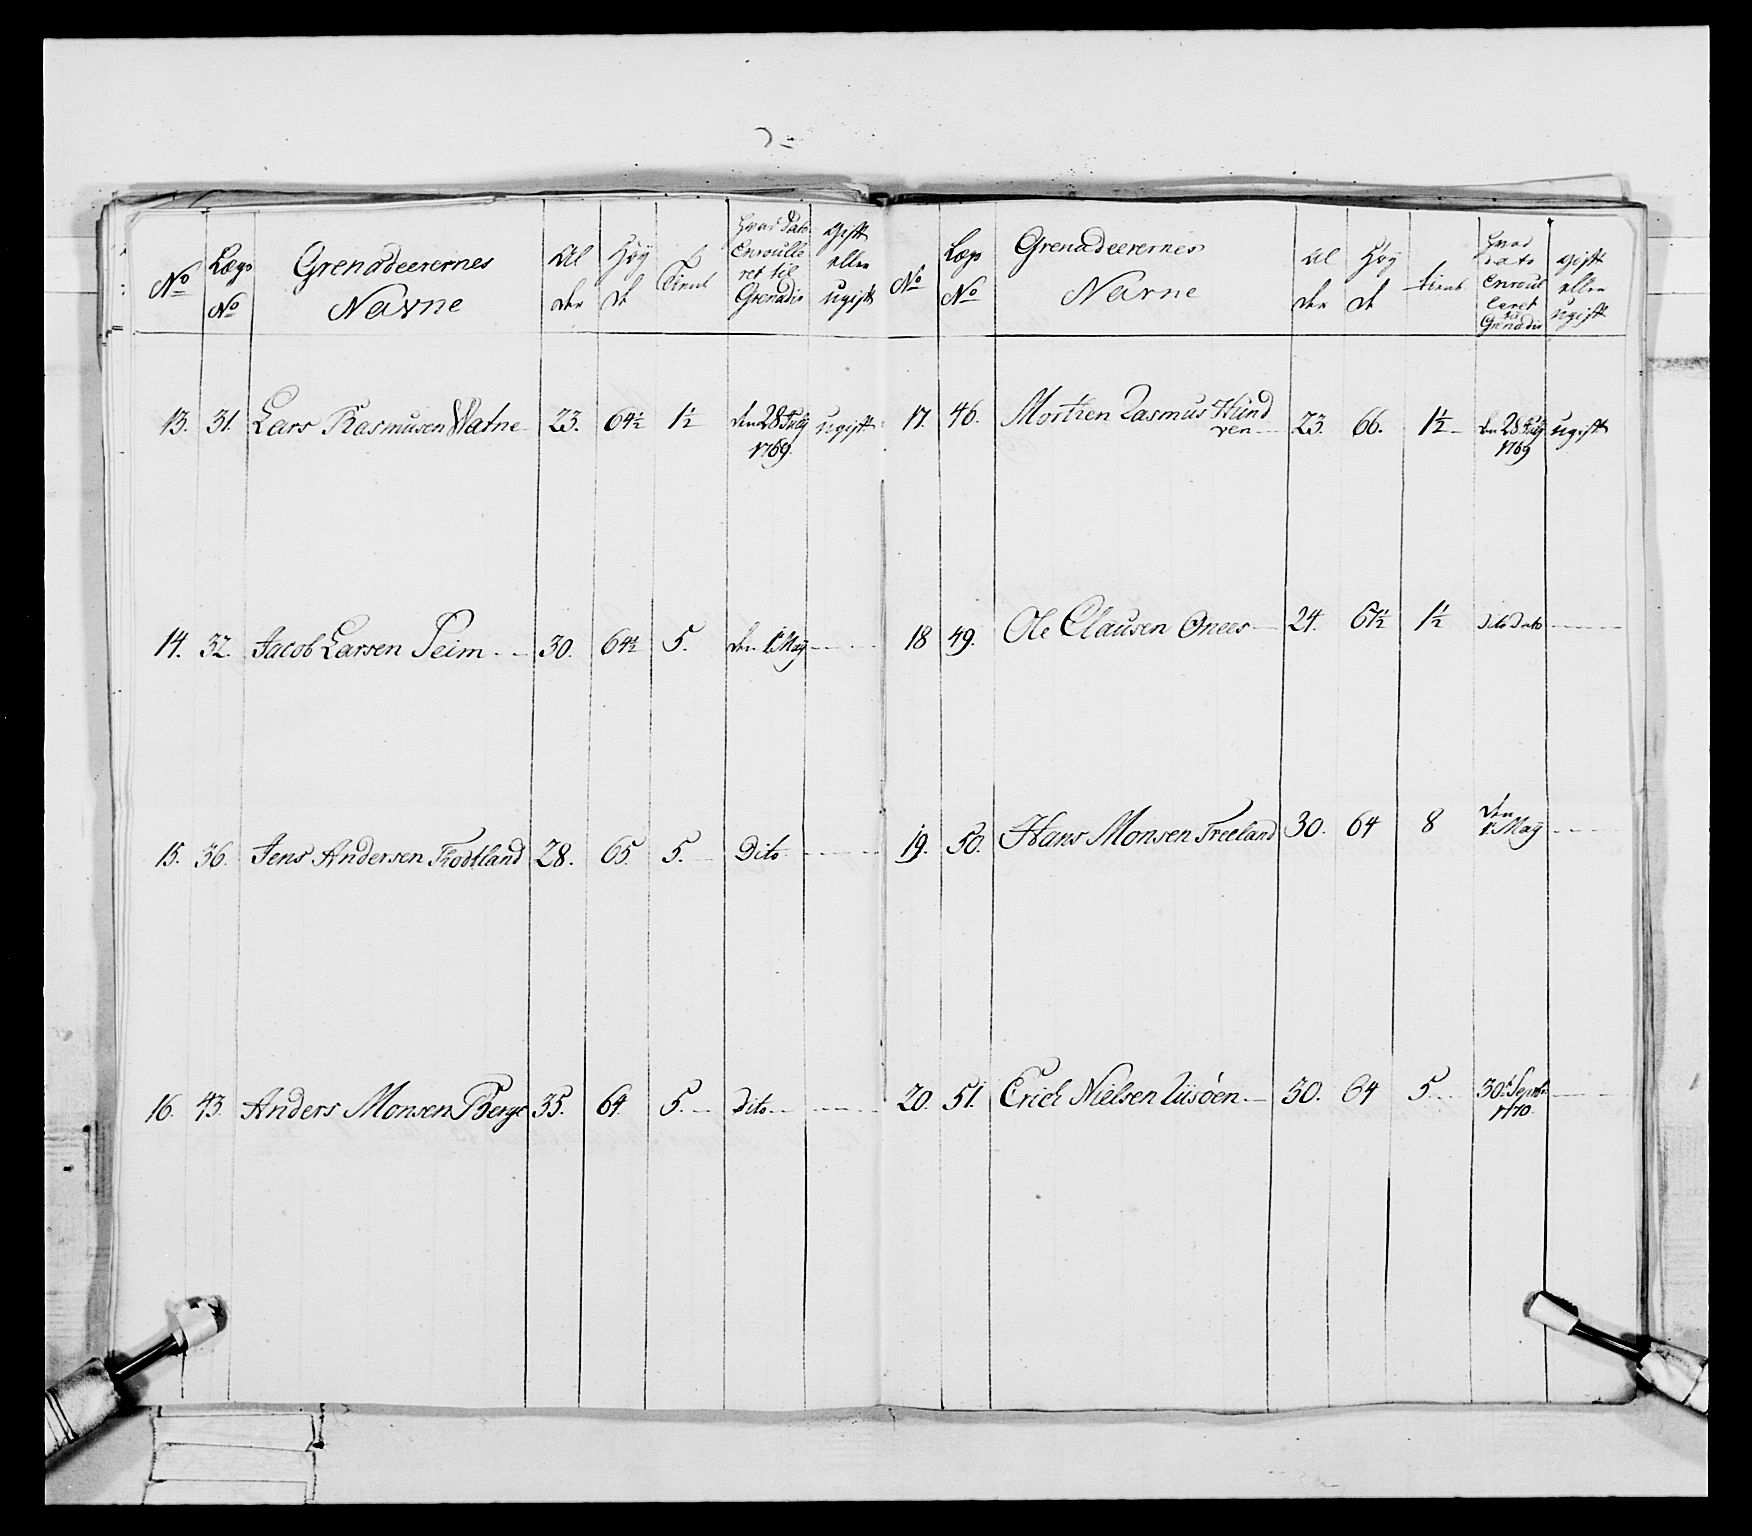 No
Lægs No
Grenadeerernes Navne
Al der
Høy de
Tient
hvad Dato Enroulleret til Grenadir
gift eller ugift
13. 31. Lars Rasmusen Watne 23. 64½ 1½ den 28 July 1769. ugift
14. 32. Jacob Larsen Seim 30. 64½ 5. den 1 May
15. 36. Jens Andersen Trodtland 28. 65. 5. Dito
16. 43. Anders Monsen Berge 35. 64. 5. Dito
No
Lægs No
Grenadeerernes Navne
Al der
Høy de
tient
hvad Dato Enroulleret til Grenadir
gift eller ugift
17. 46. Morthen Rasmus Hund
ven 23. 66. 1½ den 28 July 1769 ugift
18 49. Ole Clausen Onees 24. 67½ 1½ Dito Dato
19. 50. Hans Monsen Treeland 30. 64 8 den 1 May
20. 51. Erich Nielsen Liisøen 30. 64 5. 30 Septbr 1770.